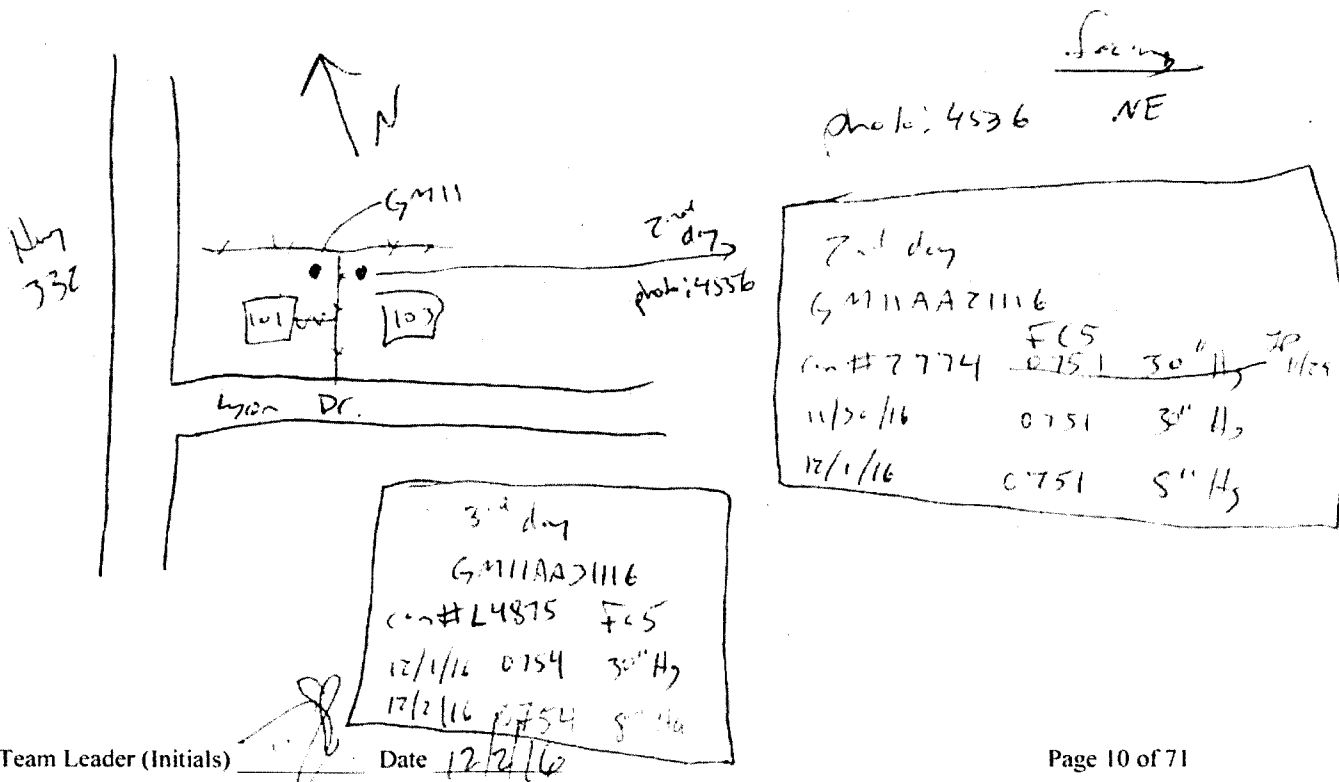 facing
photo: 4536 NE
N
GM11
Hwy
332
2nd
day
photo: 4536
101
103
Lyon Dr.
2nd day
GM11AA21116
FC5
can #2774 0751 30" Hg JP 11/29
11/30/16 0751 30" Hg
12/1/16 0751 8" Hg
3rd day
GM11AA31116
can #L4875 FC5
12/1/16 0754 30" Hg
12/2/16 0754 8" Hg
Team Leader (Initials) Date 12/2/16
Page 10 of 71